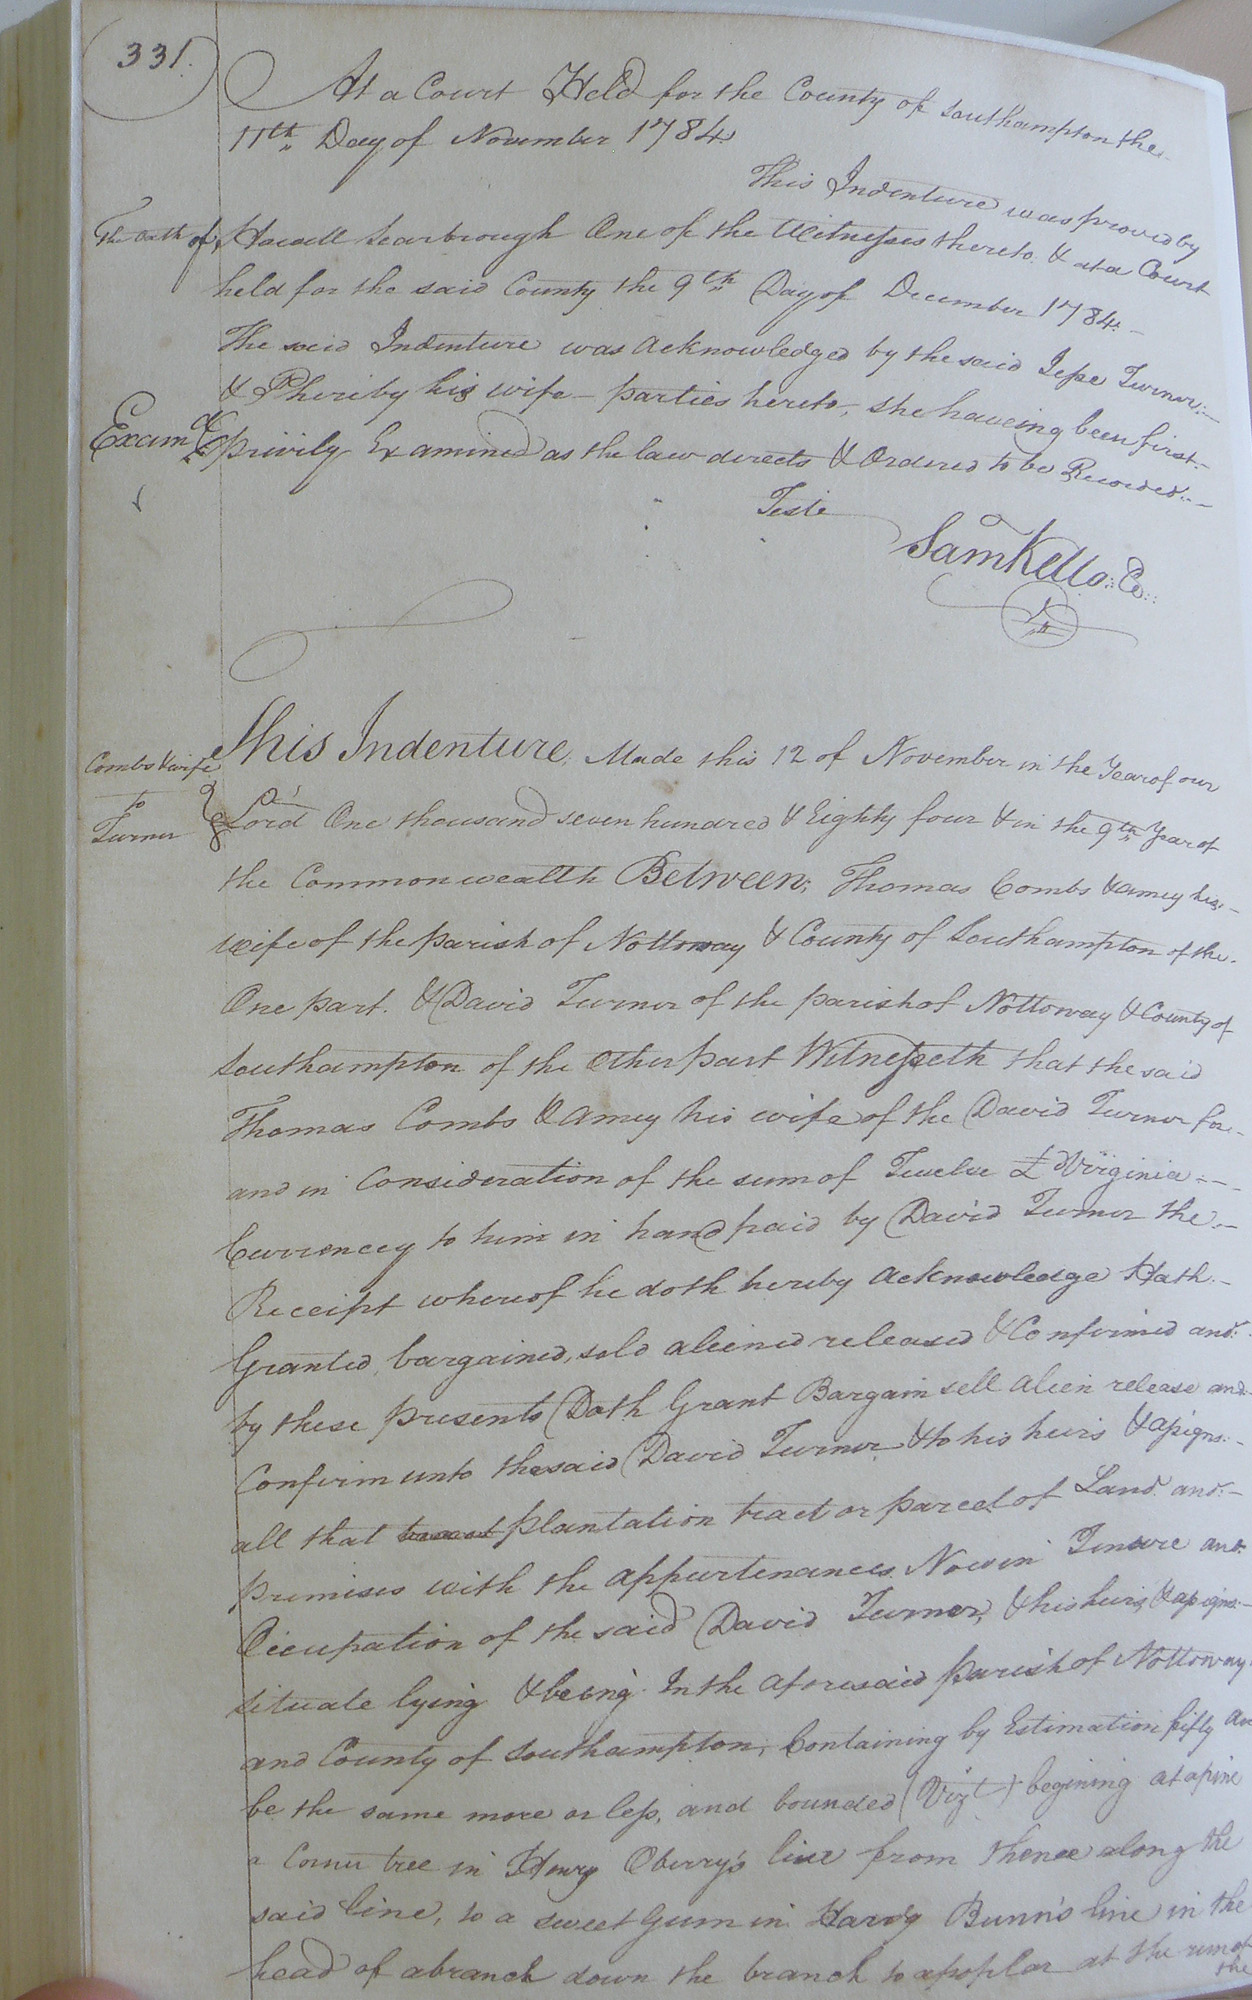 331.
At a Court Held for the County of Southampton the
11th Day of November 1784.
This Indenture was proved by
The Oath of Howell Scarbrough One of the Witnesses thereto. & at a Court
held for the said County the 9th Day of December 1784.
The said Indenture was Acknowledged by the said Jesse Turner
& Pheriby his wife parties hereto, she haveing been first
Examd privily Examined as the law directs & Ordered to be Recorded
Teste
Sam Kello Cl
Combs & wife
to
Turner
This Indenture, Made this 12 of November in the Year of our
Lord One thousand seven hundred & Eighty four & in the 9th Year of
the Commonwealth Between, Thomas Combs & Amey his
wife of the parish of Nottoway & County of Southampton of the
One part. & David Turner of the parish of Nottoway & County of
Southampton of the Other part Witnesseth that the said
Thomas Combs & Amey his wife of the David Turner for
and in Consideration of the sum of Twelve £ Virginia
Currencey to him in hand paid by David Turner the
Receipt whereof he doth hereby Acknowledge Hath
Granted, bargained, sold aleined released & Confirmed and
by these presents Doth Grant Bargain sell alein release and
Confirm unto the said David Turner & to his heirs & assigns
all that plantation tract or parcel of Land and
premises with the appurtenances Now in Tenure and
Occupation of the said David Turner, & his heirs & assigns
situate lying & being In the aforesaid parish of Nottoway
and County of Southampton, Containing by Estimation fifty
be the same more or less, and bounded (Vizt) begining at a pine
a Corner tree in Henry Oberry's line from thence along the
said line, to a sweet Gum in Hardy Bunn's line in the
head of a branch down the branch to a poplar at the run of
the